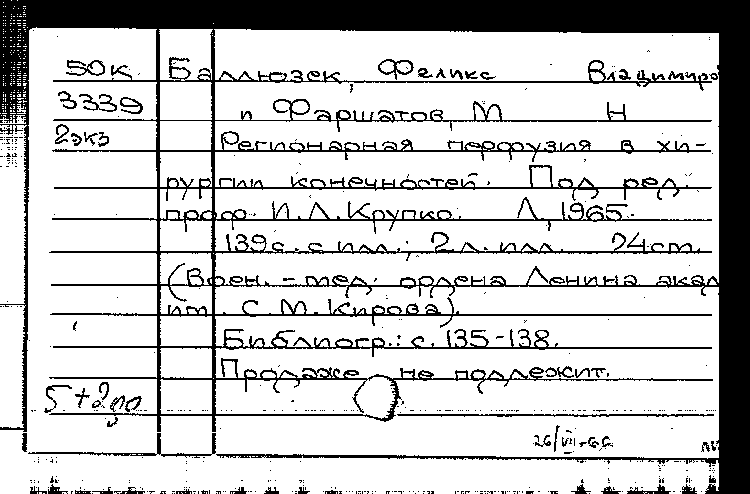 50к Баллюзек, Феликс Владимиро
3339 и Фаршатов, М Н
2экз Регионарная перфузия в хи-
рургии конечностей. Под ред.
проф. И.Л.Крупко. Л, 1965.
139с. с илл.; 2 л. илл. 24см.
(Воен.-мед. ордена Ленина акад
им. С.М.Кирова).
Библиогр.: с. 135-138.
Продаже не подлежит.
5+2
26/VII-66